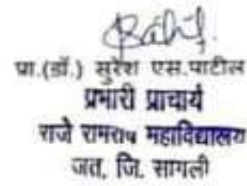 प्रा.(डॉ.) सुरेश एस.पाटील
प्रभारी प्राचार्य
राजे रामराव महाविद्यालय
जत, जि. सांगली